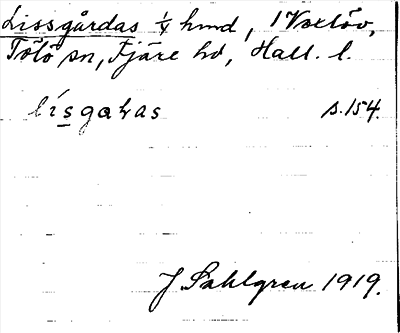 Lissgårdas 1/4 hmd, i Voxlöv,
Tölö sn, Fjäre hd, Hall. l.
lísgaɫas s. 154.
J Sahlgren 1919.